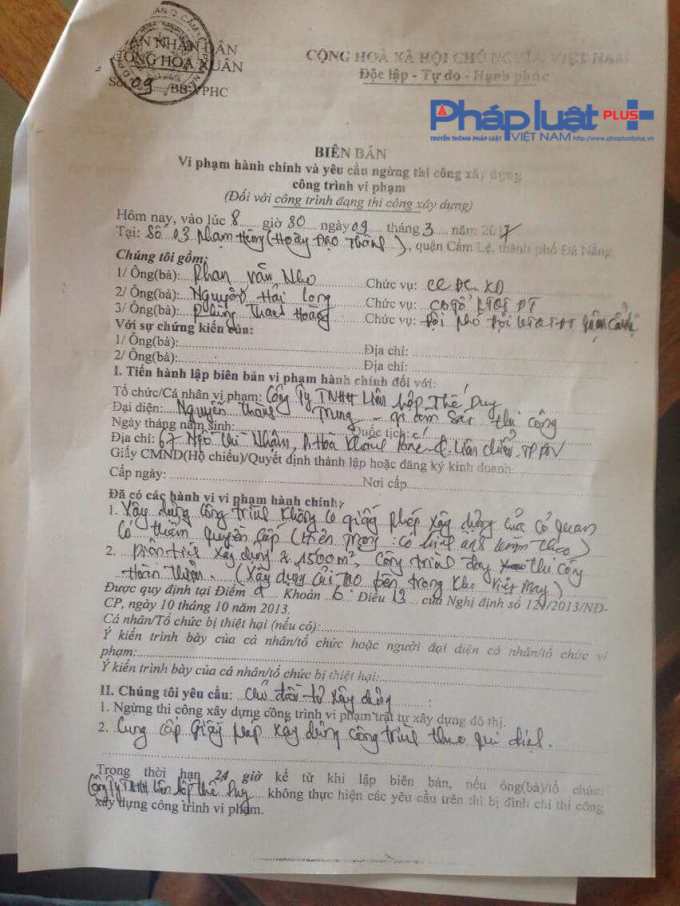 ỦY BAN NHÂN DÂN
PHƯỜNG HÒA XUÂN
Số: 09 /BB-VPHC
CỘNG HOÀ XÃ HỘI CHỦ NGHĨA VIỆT NAM
Độc lập - Tự do - Hạnh phúc
Pháp luật PLUS
TRUYỀN THÔNG PHÁP LUẬT VIỆT NAM http://www.phapluatplus.vn
BIÊN BẢN
Vi phạm hành chính và yêu cầu ngừng thi công xây dựng
công trình vi phạm
(Đối với công trình đang thi công xây dựng)
Hôm nay, vào lúc 8 giờ 30 ngày 09 tháng 3 năm 2017
Tại: Số 03 (Hoàng Đạo Thành), quận Cẩm Lệ, thành phố Đà Nẵng
Chúng tôi gồm:
1/ Ông(bà): Phan Văn Nho Chức vụ: CC ĐC-XD
2/ Ông(bà): Nguyễn Hải Long Chức vụ:
3/ Ông(bà): Phùng Thanh Hoàng Chức vụ: Đội phó Đội
Với sự chứng kiến của:
1/ Ông(bà): Địa chỉ:
2/ Ông(bà): Địa chỉ:
I. Tiến hành lập biên bản vi phạm hành chính đối với:
Tổ chức/Cá nhân vi phạm: Công Ty TNHH Liên hợp Thế Duy
Đại diện: Nguyễn Thành Trung - giám sát thi công
Ngày tháng năm sinh: Quốc tịch:
Địa chỉ: 67 Ngô Thì Nhậm, P. Hòa Khánh Q. Liên Chiểu, TP ĐN
Giấy CMND(Hộ chiếu)/Quyết định thành lập hoặc đăng ký kinh doanh
Cấp ngày: Nơi cấp
Đã có các hành vi vi phạm hành chính:
1. Xây dựng công trình không có giấy phép xây dựng của cơ quan
có thẩm quyền cấp (hiện trạng: có hình ảnh kèm theo)
2. Diện tích xây dựng 1500m², Công trình đang thi công
hoàn thiện. (Xây dựng cải tạo bên trong khu Việt May)
Được quy định tại Điểm a Khoản 6 Điều 13 của Nghị định số 121/2013/NĐ-
CP, ngày 10 tháng 10 năm 2013.
Cá nhân/Tổ chức bị thiệt hại (nếu có):
Ý kiến trình bày của cá nhân/tổ chức hoặc người đại diện cá nhân/tổ chức vi
phạm:
Ý kiến trình bày của cá nhân/tổ chức bị thiệt hại:
II. Chúng tôi yêu cầu: Chủ đầu tư xây dựng :
1. Ngừng thi công xây dựng công trình vi phạm trật tự xây dựng đô thị.
2. Cung cấp giấy phép xây dựng công trình theo qui định.
Trong thời hạn 24 giờ kể từ khi lập biên bản, nếu ông(bà)/tổ chức:
Công Ty TNHH Liên hợp Thế Duy không thực hiện các yêu cầu trên thì bị đình chỉ thi công
xây dựng công trình vi phạm.